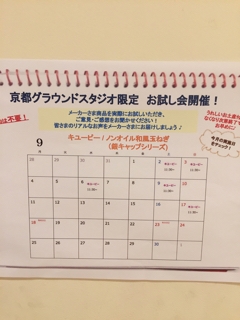 京都グラウンドスタジオ限定 お試し会開催！
メーカーさま商品を実際にお試しいただき、
ご意見・ご感想をお聞かせください！
皆さまのリアルなお声をメーカーさまにお届けしましょう♪
は不要！
キユーピー / ノンオイル和風玉ねぎ
(銀キャップシリーズ)
今月の実施日
をチェック！
9
月
28 29 30 31 1 2 3
4 5 6 7 8 9 10
11 12 13 14 15 16 17
18 19 20 21 22 23 24
25 26 27 28 29 30